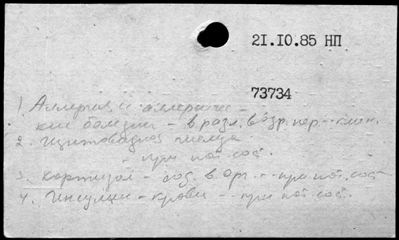 21.10.85 НП
73734
1. Аллергия и аллергичес-
кие болезни - в разл. возр. пер. - клин.
2. Щитовидная железа
- при пат. сост.
3. Кортизол - сод. в орг. - при пат. сост.
4. Инсулин - крови - при пат. сост.